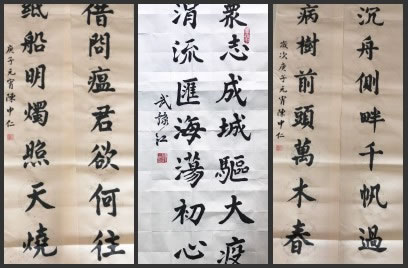 借問瘟君欲何往
紙船明燭照天燒
庚子元宵陳中仁
眾志成城驅大疫
涓流匯海蕩初心
沉舟側畔千帆過
病樹前頭萬木春
歲次庚子元宵陳中仁